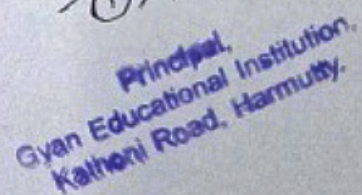 Principal,
Gyan Educational Institution.
Kathoni Road, Harmutty.